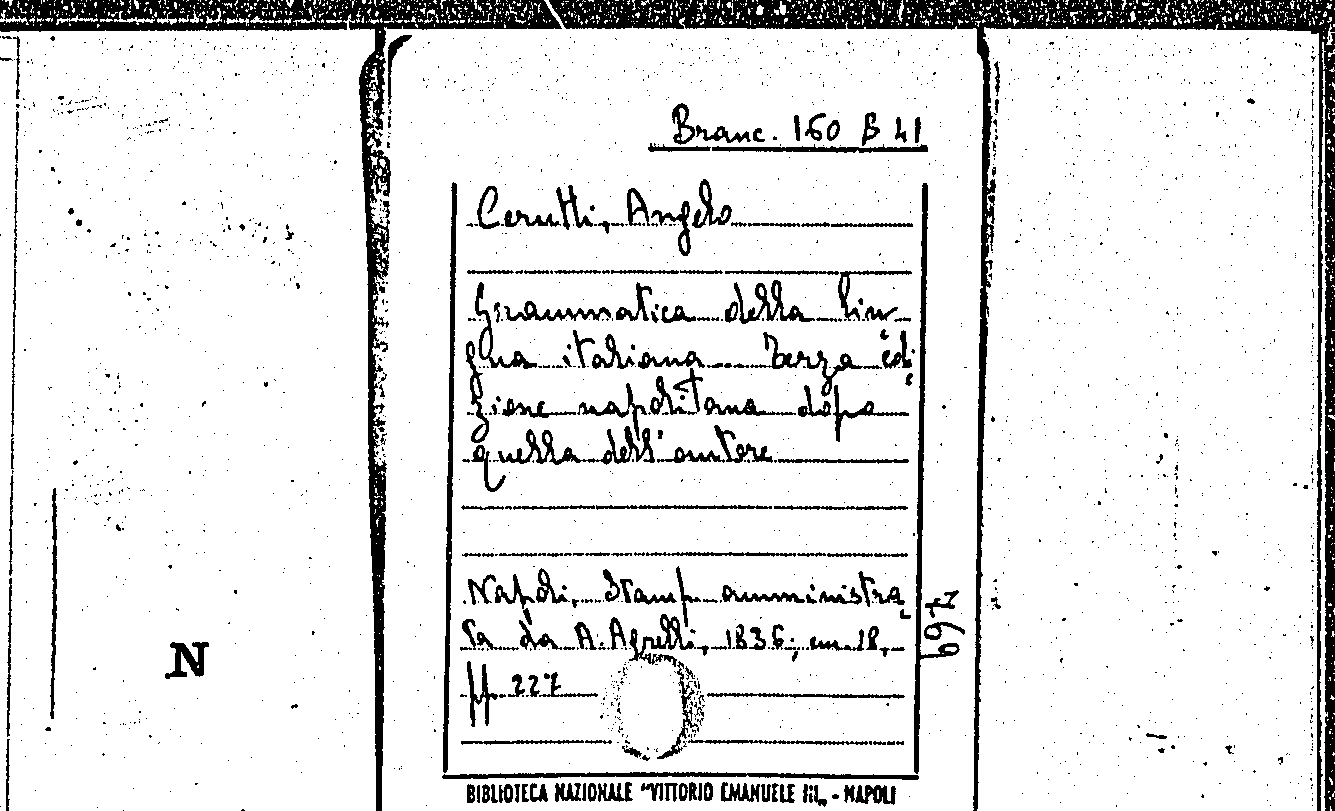 Branc. 160 B 41
Cerutti, Angelo
Grammatica della lin-
gua italiana... Terza edi-
zione napolitana dopo
quella dell'autore
Napoli, Stamp. amministra-
ta da A. Agrelli, 1836; in-18,
pp. 227
697
N
BIBLIOTECA NAZIONALE "VITTORIO EMANUELE III„ - NAPOLI